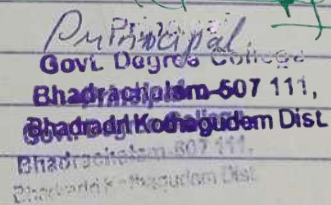 Principal
Govt. Degree College
Bhadrachalam-507 111,
Bhadradri Kothagudem Dist.
Bhadrachalam-507 111.
Bhadradri Kothagudem Dist.